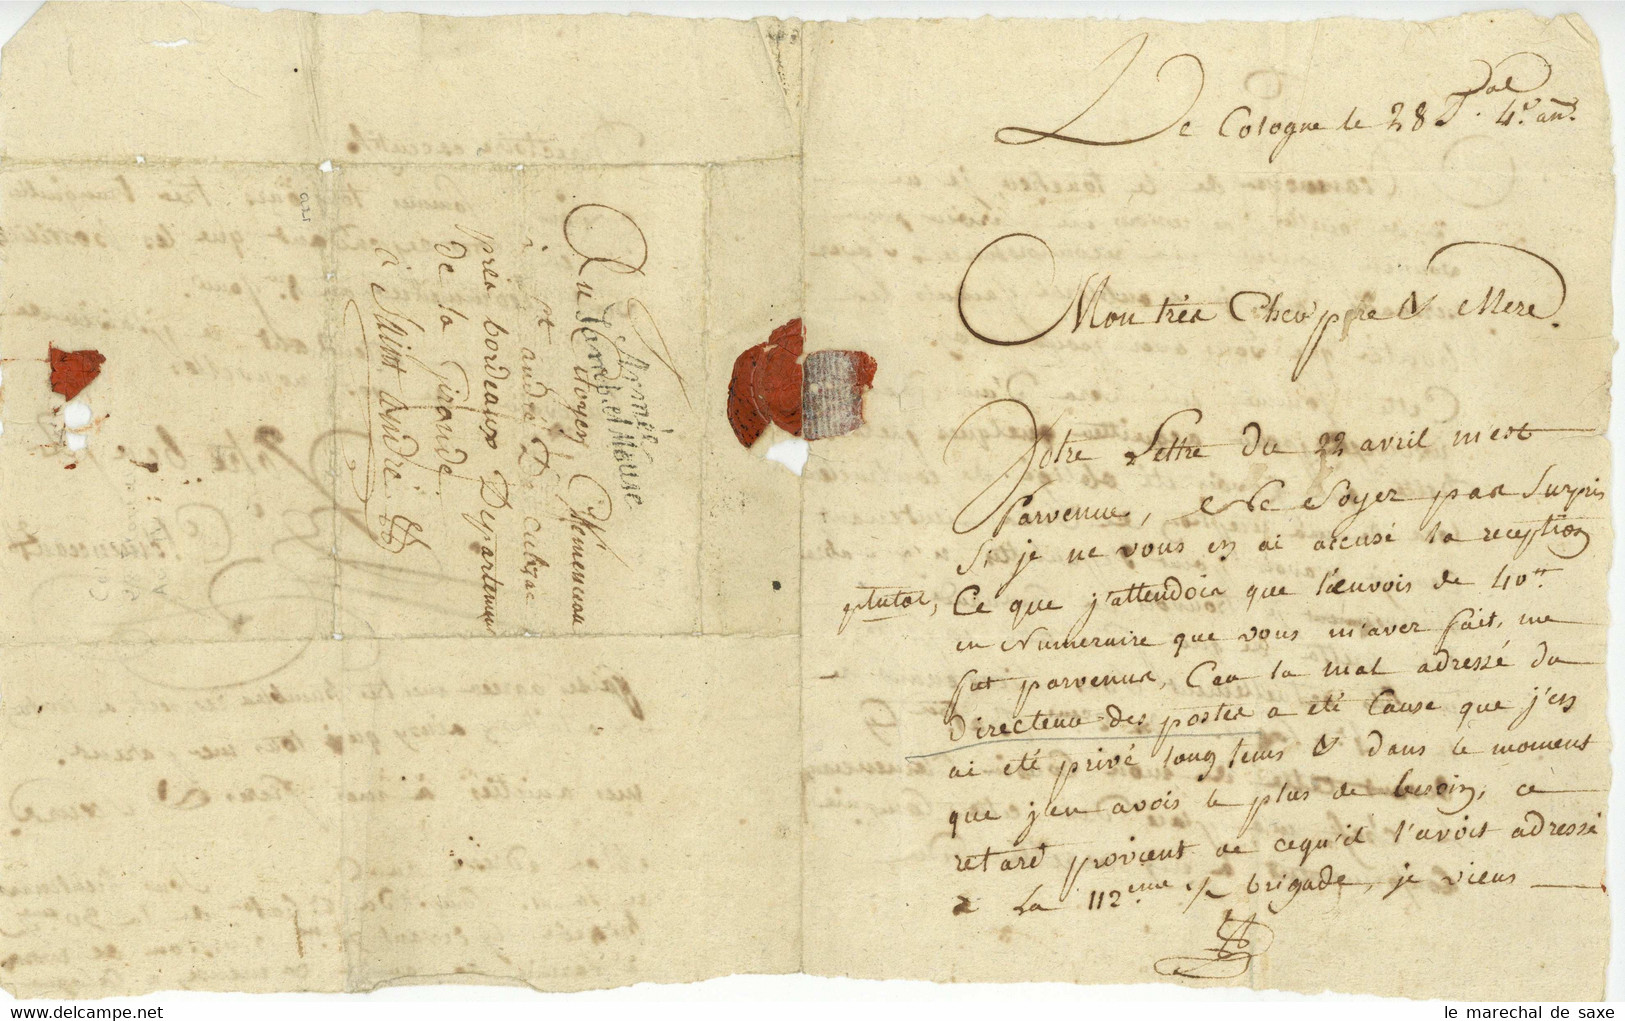 De Cologne le 28 P.al 4.e an.
Mon très Cher père & Mere.
Votre Lettre du 22 avril m'est
Parvenue, Ne Soyez pas Surpris
Si je ne vous en ai accusé la reception
plutot, Ce que j'attendois que l'envois de 40tt
en Numeraire que vous m'aver fait, me
fut parvenus, Car la mal adressé du
Directeur des postes a eté Cause que j'en
ai eté privé longtems & dans le moment
que j'en avois le plus de besoin, ce
retard provient de cequ'il l'avoit adressé
a La 112eme 1/2 brigade, je viens
Armée
de Sambre et Meuse
Au Citoyen Clemenceau
à St andré De cubzac
près bordeaux Departement
de la Gironde.
à Saint andré
le marechal de saxe